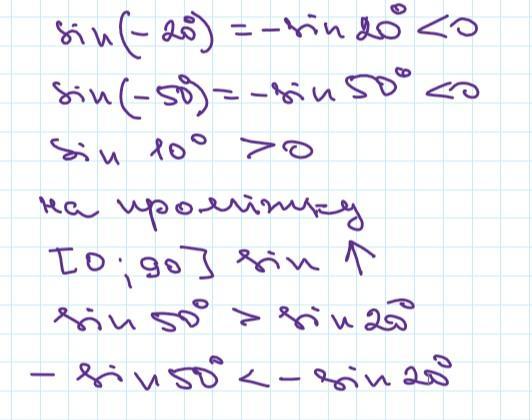 sin(-20°) = -sin 20° < 0
sin(-50°) = -sin 50° < 0
sin 10° > 0
на проміжку
[0; 90] sin ↑
sin 50° > sin 20°
- sin 50° < - sin 20°